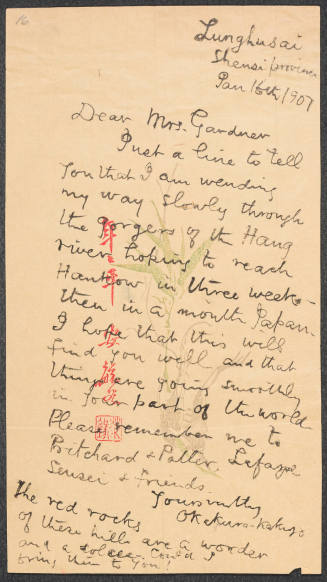 16
Lunghusai
Shensi province
Jan 16th/1907
Dear Mrs. Gardner
Just a line to tell
you that I am wending
my way slowly through
the gorges of the Hang
river hoping to reach
Hankow in three weeks —
then in a month Japan.
I hope that this will
find you well and that
things are going smoothly
in your part of the world
Please remember me to
Pritchard & Potter, Lafarge
Sensei & friends.
Yours truly
Okakura-Kakuzo
The red rocks
of these hills are a wonder
and a solace. Could I
bring them to you!